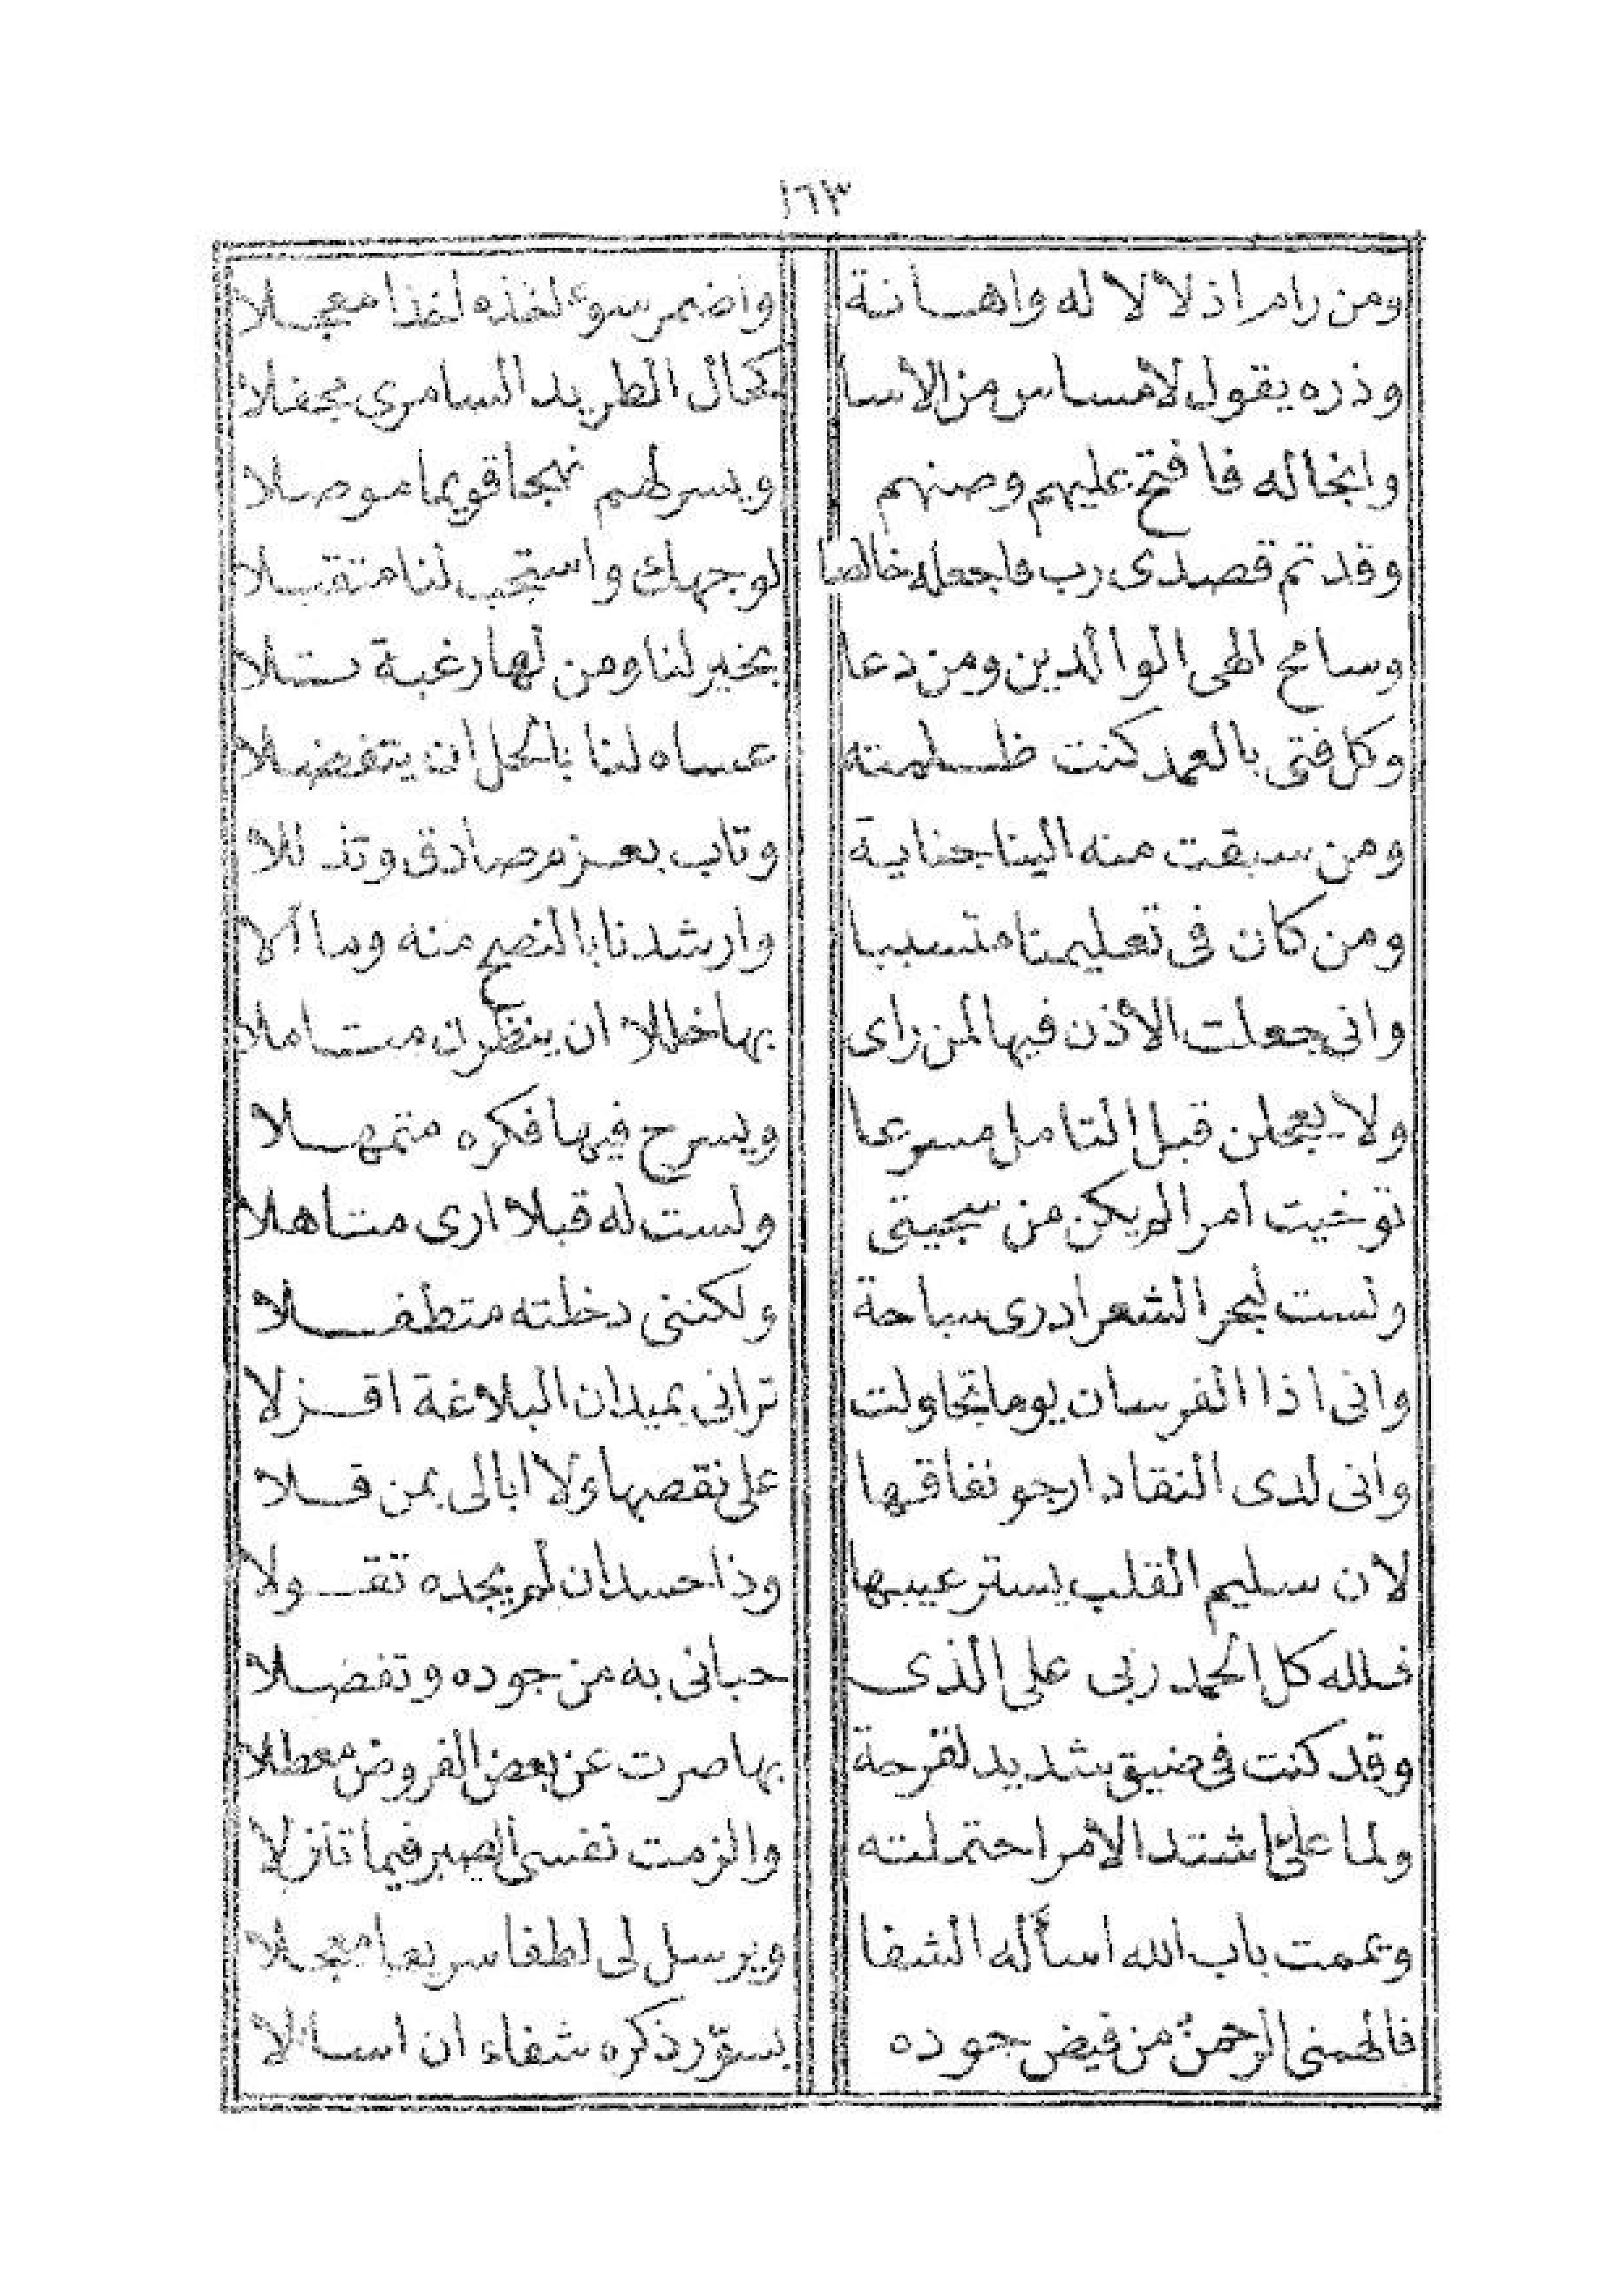 ١٦٣
ومن رام اذلالا له واهانة واضمر سوء لخذه لخذا معجلا
وذره يقول لامساس من الأسا كحال الطريد السامرى مجفلا
وانجاله فافتح عليهم وصنهم ويسر لهم نهجا قويما موصلا
وقد تم قصدى رب فاجعله خالصا لوجهك واستجب لنا متقبلا
وسامح الهى الوالدين ومن دعا بخير لنا ومن لها رغبة تلا
وكل فتى بالعمد كنت ظلمته عساه لنا بالحل ان يتفضلا
ومن سبقت منه الينا جناية وتاب بعزم صادق وتذللا
ومن كان فى تعليمنا متسببا وارشدنا بالنصح منه وما آلا
وانى جعلت الأذن فيها لمن رأى بها خللا ان ينظرنه متاملا
ولا يعجلن قبل التامل مسرعا ويسرح فيها فكره متمهلا
توخيت امرا لم يكن من سجيتى ولست له قبلا ارى متاهلا
ولست لبحر الشعر ادرى سباحة ولكننى دخلته متطفلا
وانى اذا الفرسان يوما تجاولت ترانى بميدان البلاغة اقزلا
وانى لدى النقاد ارجو نفاقها على نقصها ولا ابالى بمن قلا
لان سليم القلب يستر عيبها وذا حسد ان لم يجده تقولا
فلله كل الحمد ربى على الذى حبانى به من جوده وتفضلا
وقد كنت فى ضيق شديد لقرحة بها صرت عن بعض الفروض معطلا
ولما علىّ اشتد الأمر احتملته والزمت نفسى الصبر فيما تنزلا
ويممت باب الله اسأله الشفا ويرسل لى لطفا سريعا معجلا
فالهمنى الرحمن من فيض جوده بسوّر ذكره شفاء ان اسالا